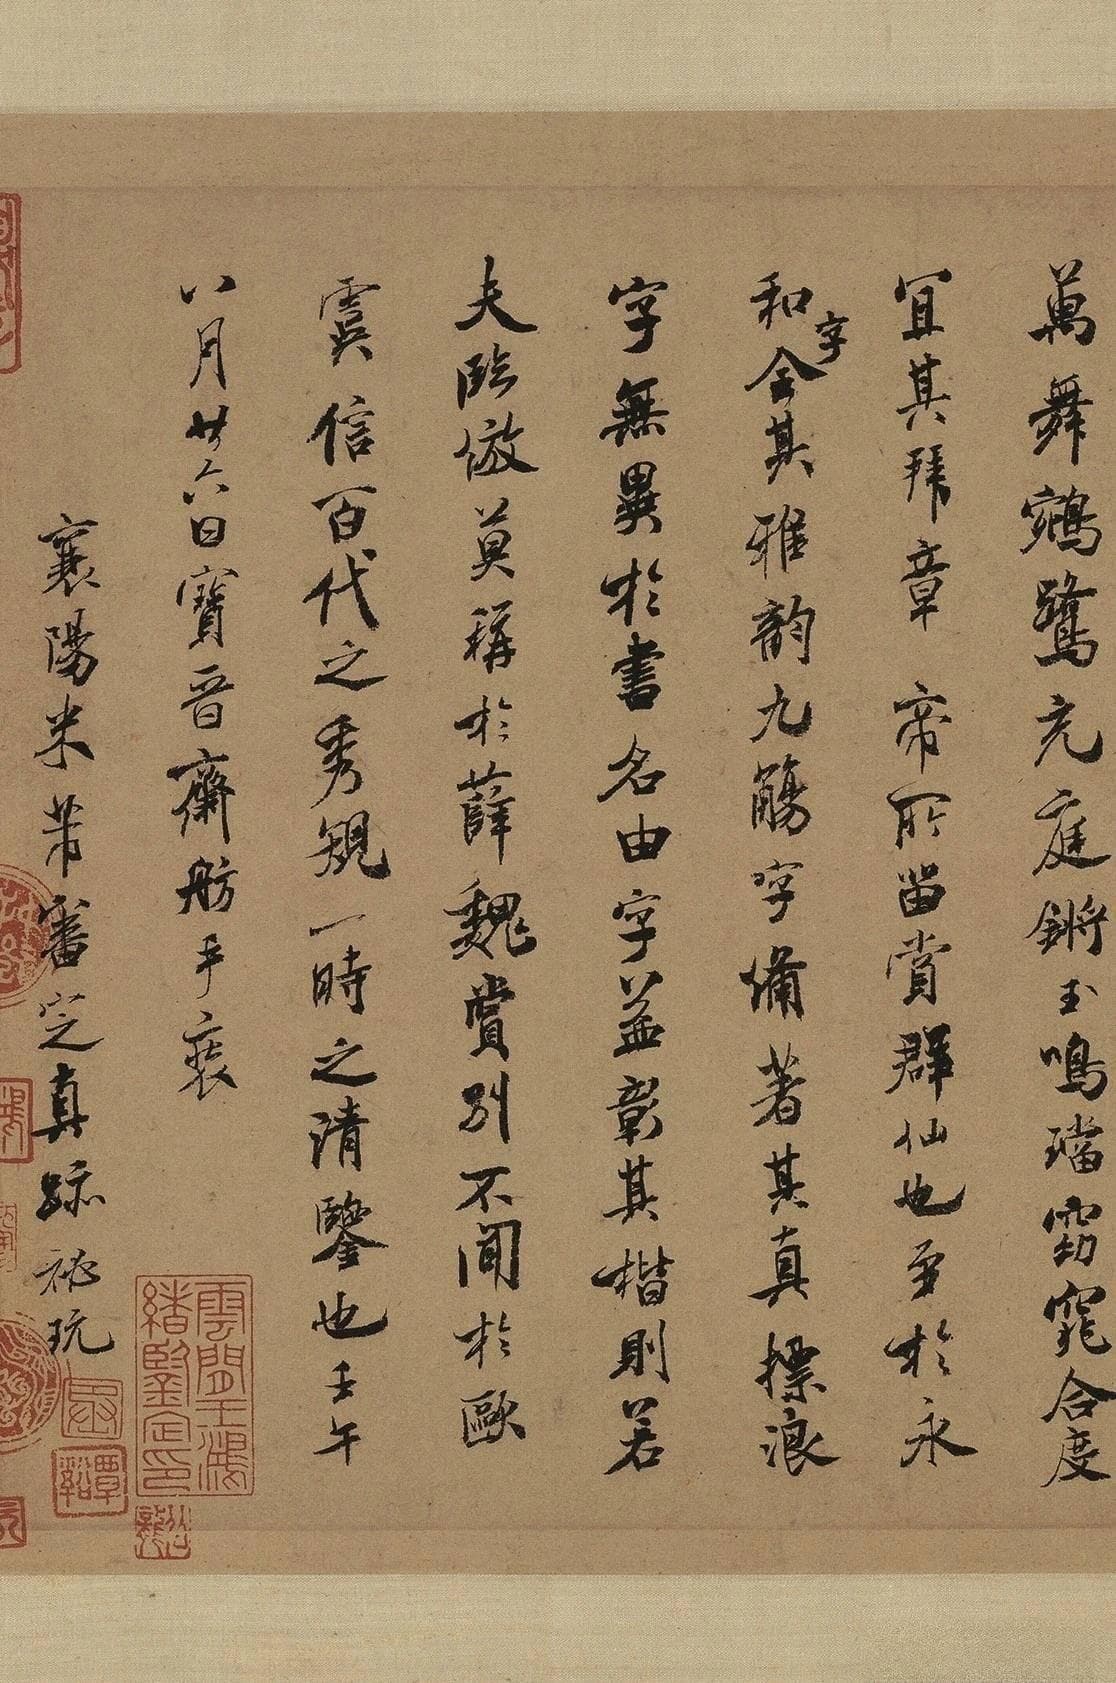 萬舞鵷鷺充庭鏘玉鳴璫窈窕合度
宜其拜章帝所留賞群仙也至於永
和字全其雅韻九觴字備著其真標浪
字無異於書名由字益彰其楷則若
夫臨倣莫稱於薛魏賞別不聞於歐
虞信百代之秀規一時之清鑒也壬午
八月廿六日寶晉齋舫手裝
襄陽米芾審定真跡祕玩
雲間王鴻
緒鑒定印